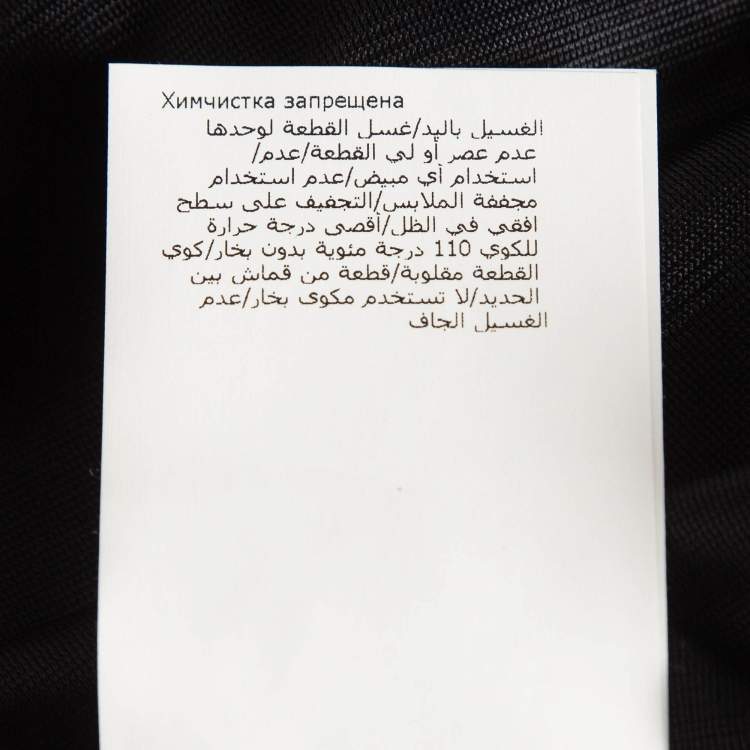 Химчистка запрещена
الغسيل باليد/غسل القطعة لوحدها
عدم عصر أو لي القطعة/عدم/
استخدام أي مبيض/عدم استخدام
مجففة الملابس/التجفيف على سطح
افقي في الظل/أقصى درجة حرارة
للكوي 110 درجة مئوية بدون بخار/كوي
القطعة مقلوبة/قطعة من قماش بين
الحديد/لا تستخدم مكوى بخار/عدم
الغسيل الجاف